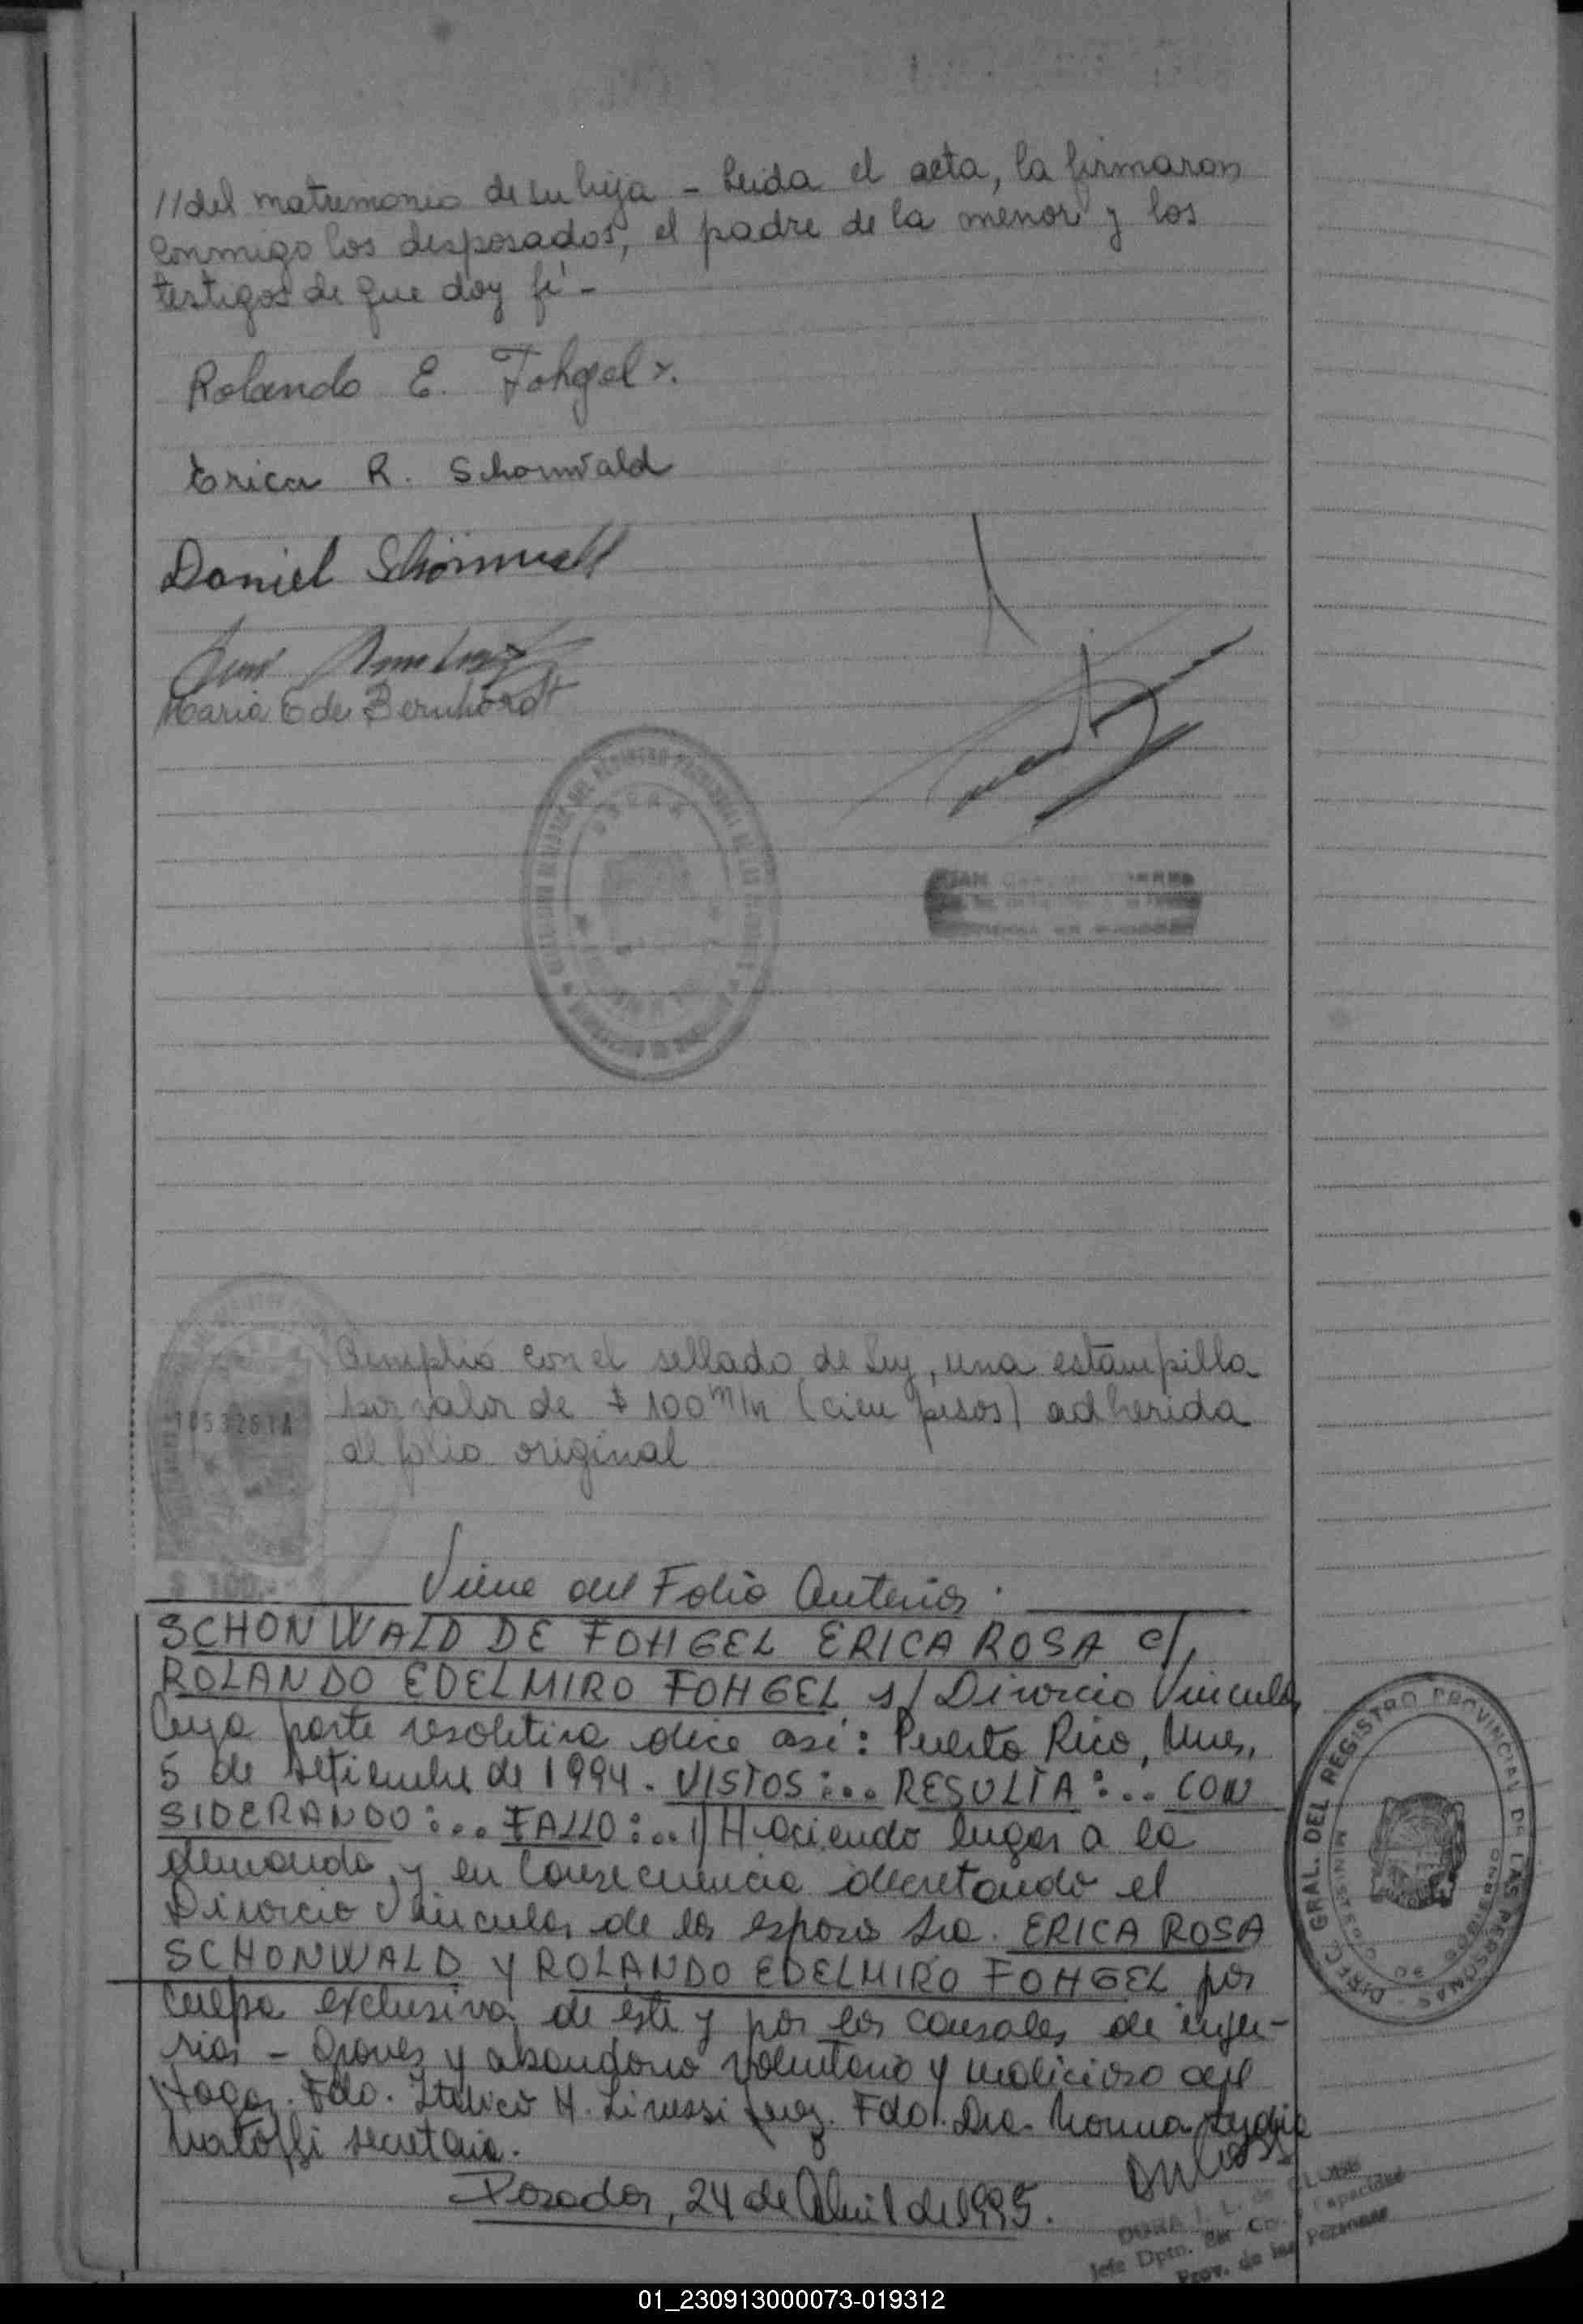 //del matrimonio de su hija - Leida el acta, la firmaron
conmigo los desposados, el padre de la menor y los
testigos de que doy fé -
Rolando E. Fohgel
Erica R. Schonwald
Daniel Schönwald
Maria E de Bernhardt
Cumplió con el sellado de Ley, una estampilla
por valor de $ 100 m/n (cien pesos) adherida
al folio original
$ 100.-
Viene del Folio Anterior.
SCHONWALD DE FOHGEL ERICA ROSA c/
ROLANDO EDELMIRO FOHGEL s/ Divorcio Vincular
Cuya parte resolutiva dice así: Puerto Rico, Mnes,
5 de setiembre de 1994. VISTOS:... RESULTA:... CON
SIDERANDO:... FALLO:.. 1) Haciendo lugar a la
demanda y en Consecuencia decretando el
Divorcio Vincular de los esposos Sra. ERICA ROSA
SCHONWALD Y ROLANDO EDELMIRO FOHGEL por
Culpa exclusiva de éste y por las causales de inju-
rias - Graves y abandono voluntario y malicioso del
Hogar. Fdo. Italico H. Juez. Fdo. Dra. Norma Lydia
secretaria.
Posadas, 24 de Abril de 1995.
DIREC. GRAL. DEL REGISTRO PROVINCIAL DE LAS PERSONAS
DORA I. L. de
Jefe Dpto. Capacidad
Prov. de las Personas
01_230913000073-019312